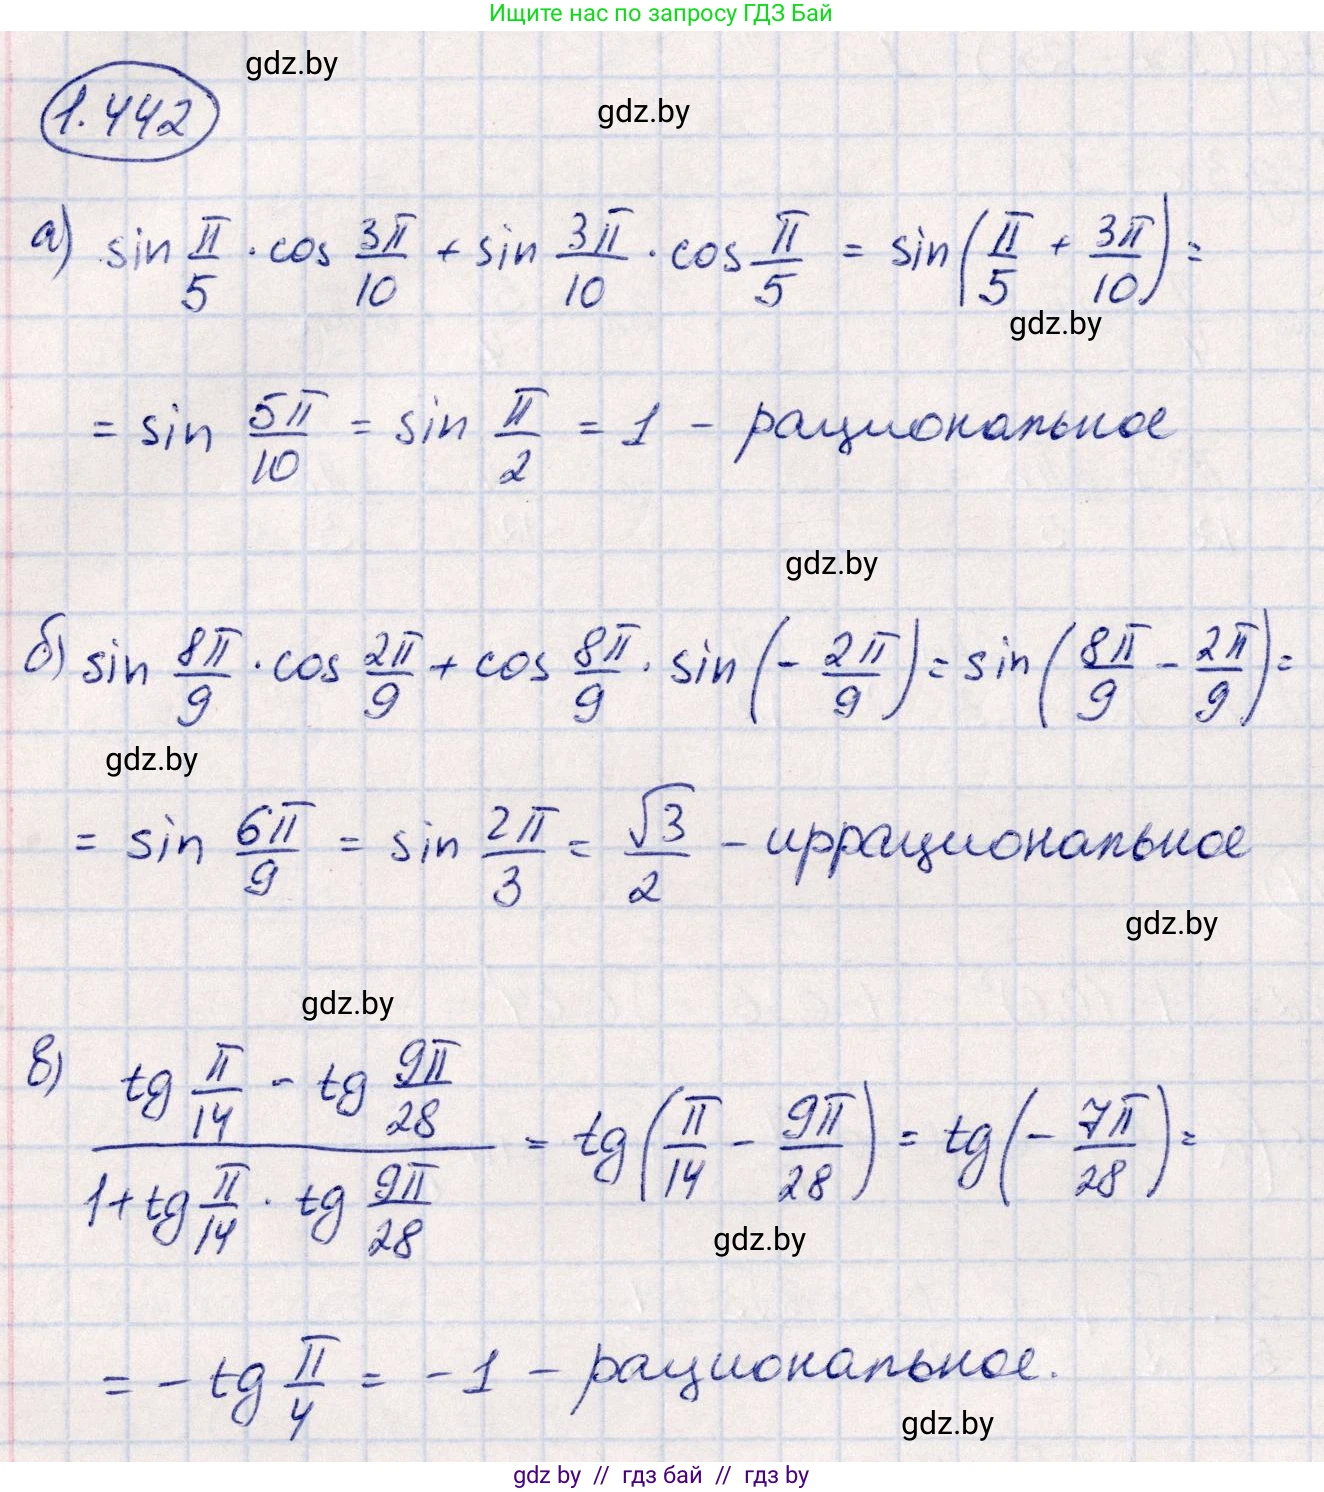 Ищите нас по запросу ГДЗ Бай
gdz.by
1.442
gdz.by
а) sin π/5 · cos 3π/10 + sin 3π/10 · cos π/5 = sin(π/5 + 3π/10) =
gdz.by
= sin 5π/10 = sin π/2 = 1 - рациональное
gdz.by
б) sin 8π/9 · cos 2π/9 + cos 8π/9 · sin(- 2π/9) = sin(8π/9 - 2π/9) =
gdz.by
= sin 6π/9 = sin 2π/3 = √3/2 - иррациональное
gdz.by
gdz.by
в) (tg π/14 - tg 9π/28)/(1 + tg π/14 · tg 9π/28) = tg(π/14 - 9π/28) = tg(- 7π/28) =
gdz.by
= - tg π/4 = - 1 - рациональное.
gdz.by
gdz by // гдз бай // гдз by